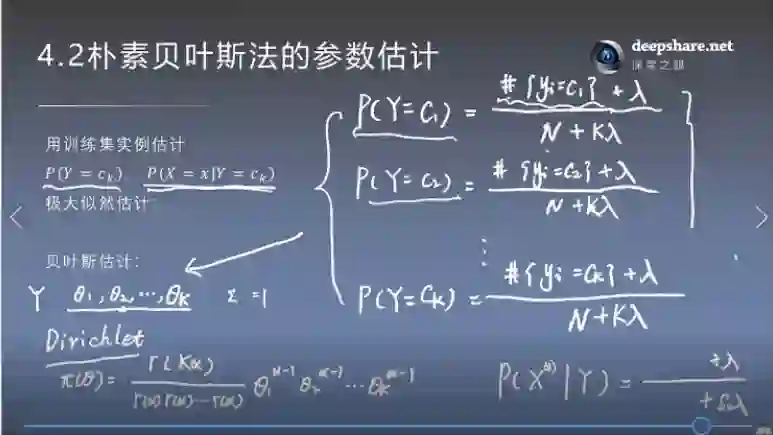 4.2朴素贝叶斯法的参数估计
deepshare.net
深度之眼
用训练集实例估计
P(Y = c_k) P(X = x|Y = c_k)
极大似然估计:
贝叶斯估计:
Y θ₁,θ₂,…,θ_K Σ=1
Dirichlet
π(θ)= Γ(Kα) / Γ(α)Γ(α)…Γ(α) θ₁^(α-1) θ₂^(α-1) … θ_K^(α-1)
P(Y=C₁) = #{yi=C₁}+λ / N+Kλ
P(Y=C₂) = #{yi=C₂}+λ / N+Kλ
⋮
P(Y=C_K) = #{yi=C_K}+λ / N+Kλ
P(X^(j)|Y) = +λ / +S_jλ